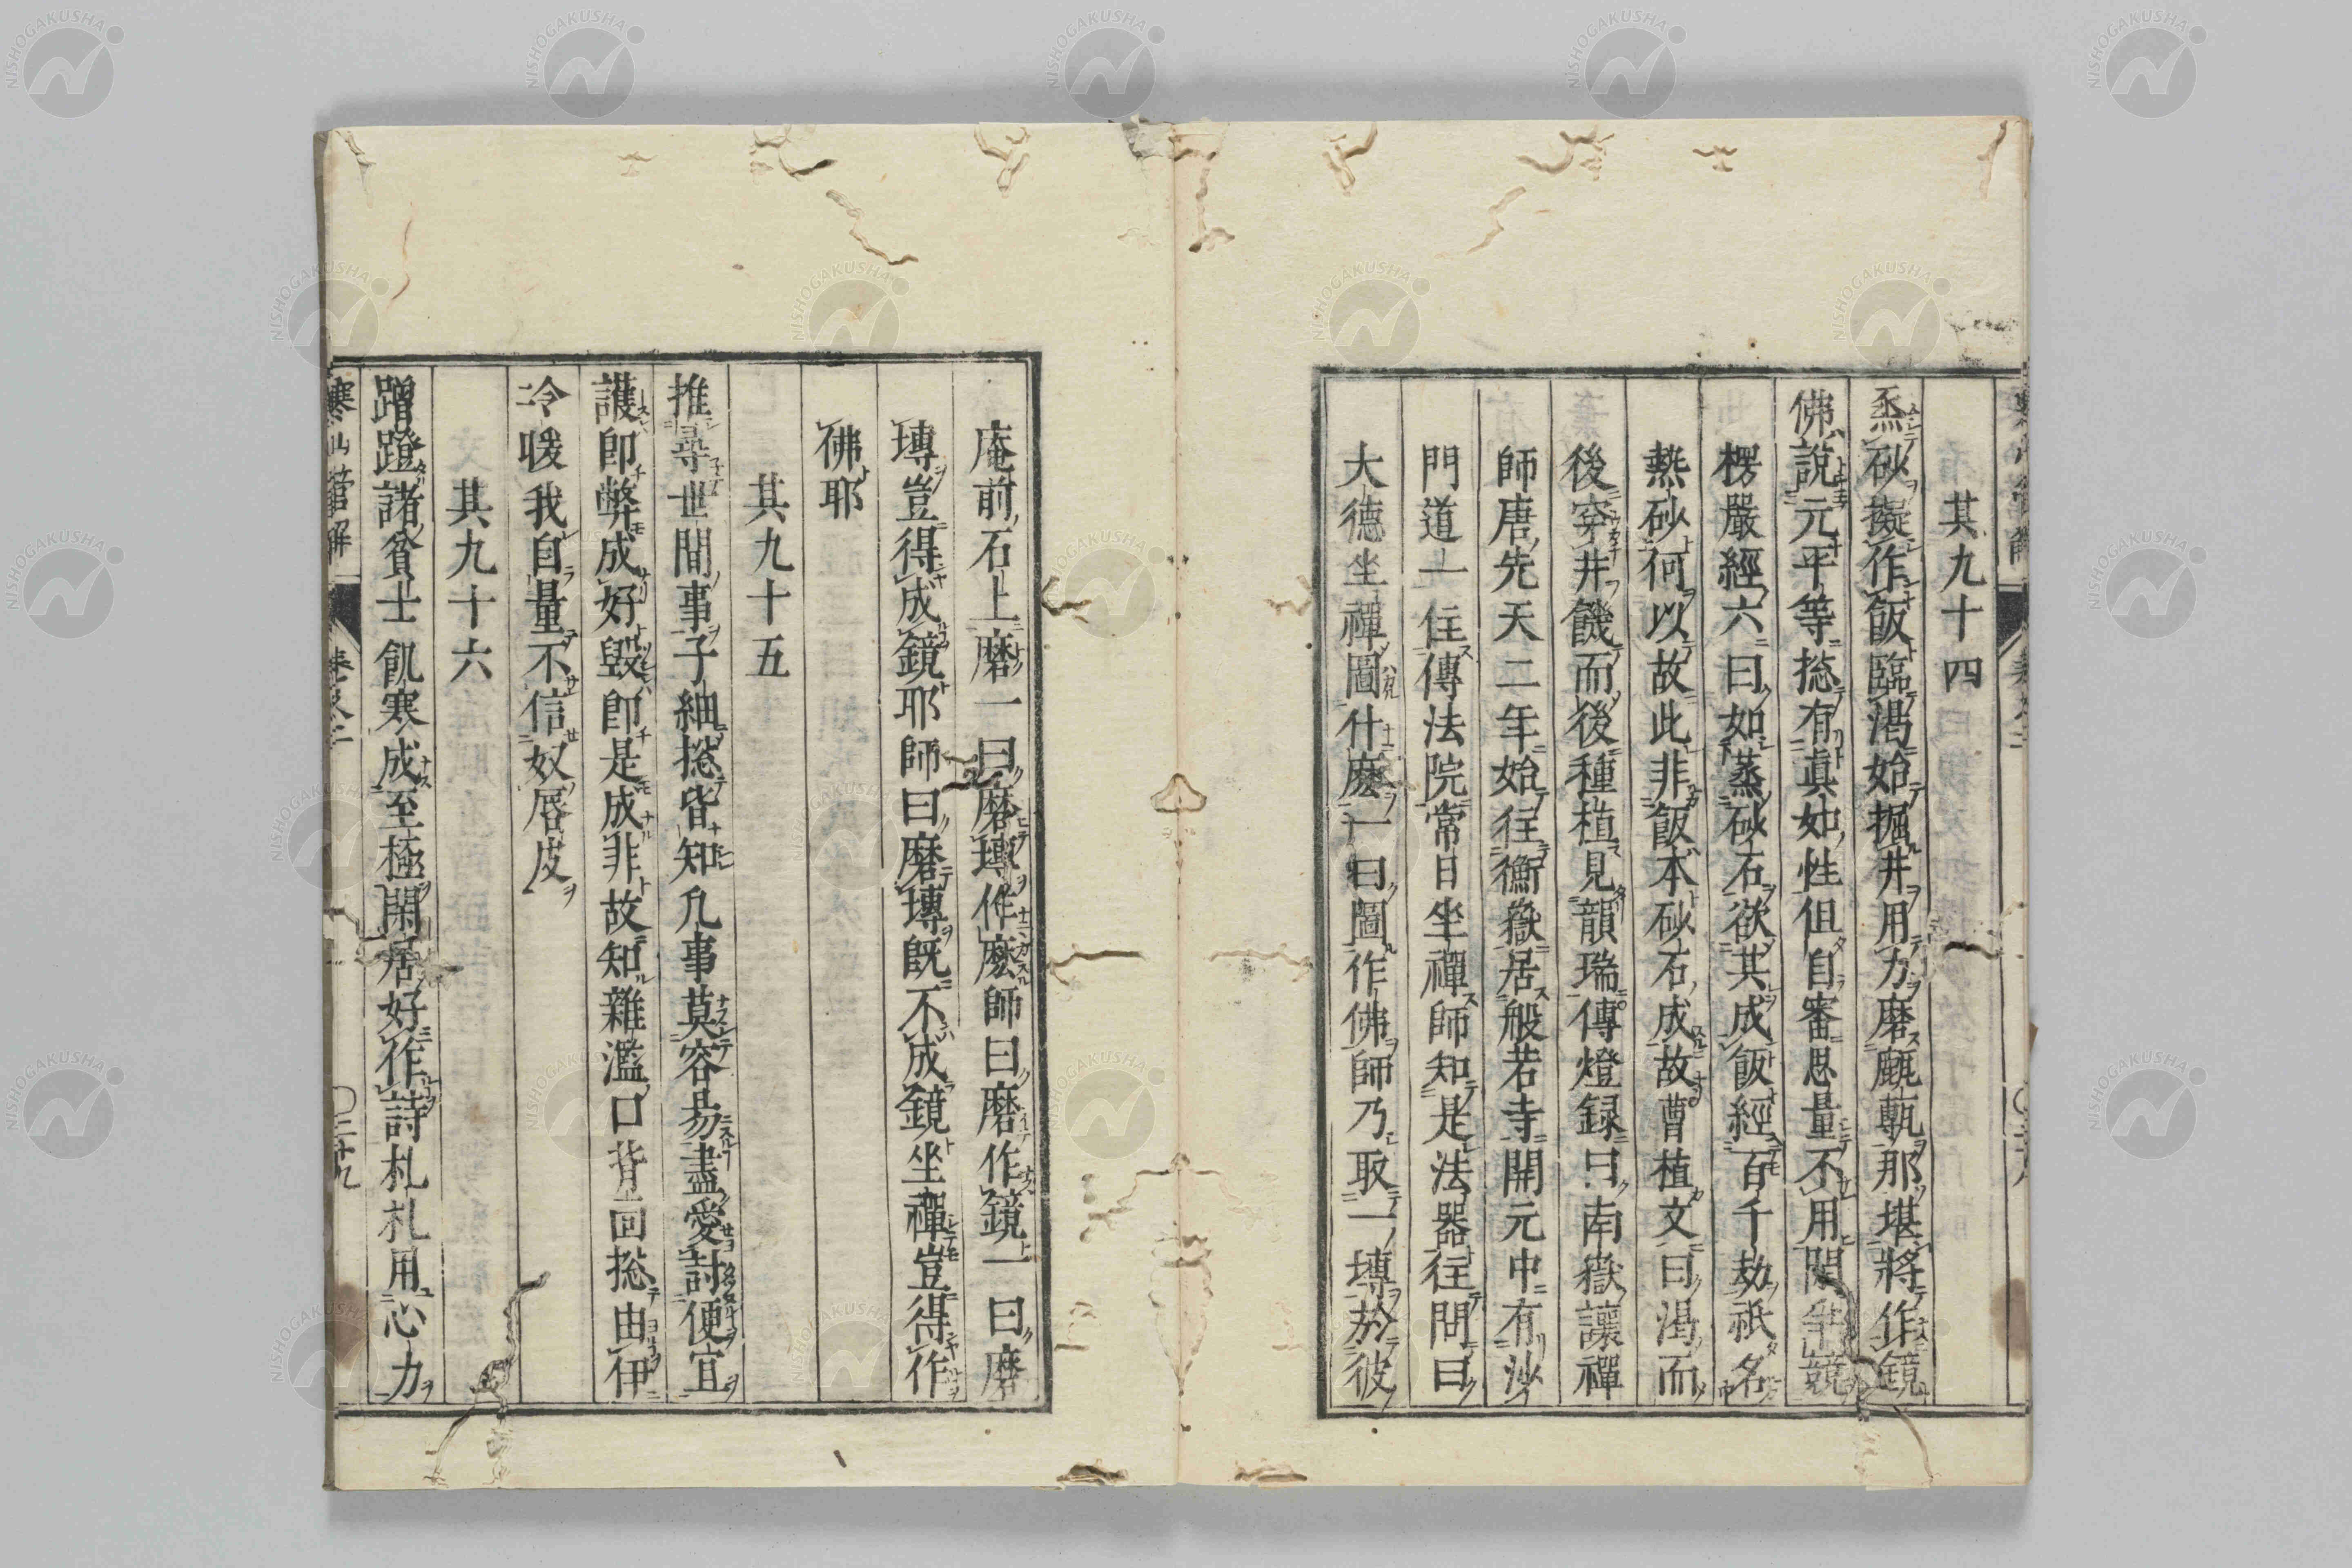 其九十四
烝砂擬作飯臨渇始掘井用力磨甎甎那堪將作鏡
佛說元平等捴有眞如性但自審思量不用閑爭競
楞嚴經六曰如蒸砂石欲其成飯經百千劫祇名
熱砂何以故此非飯本砂石成故曹植文曰渇而
後穿井饑而後種植見韻瑞傳燈録曰南嶽讓禪
師唐先天二年始往衡嶽居般若寺開元中有沙
門道一住傳法院常日坐禪師知是法器往問曰
大德坐禪圖什麽一曰圖作佛師乃取一塼於彼
庵前石上磨一曰磨塼作麽師曰磨作鏡一曰磨
塼豈得成鏡耶師曰磨塼既不成鏡坐禪豈得作
佛耶
其九十五
推尋世間事子細捴皆知凡事莫容易盡愛討便宜
護卽弊成好毀卽是成非故知雜濫口背面捴由伊
冷暖我自量不信奴唇皮
其九十六
蹭蹬諸貧士飢寒成至極閑居好作詩札札用心力
寒山管解 卷之二 〇二十九